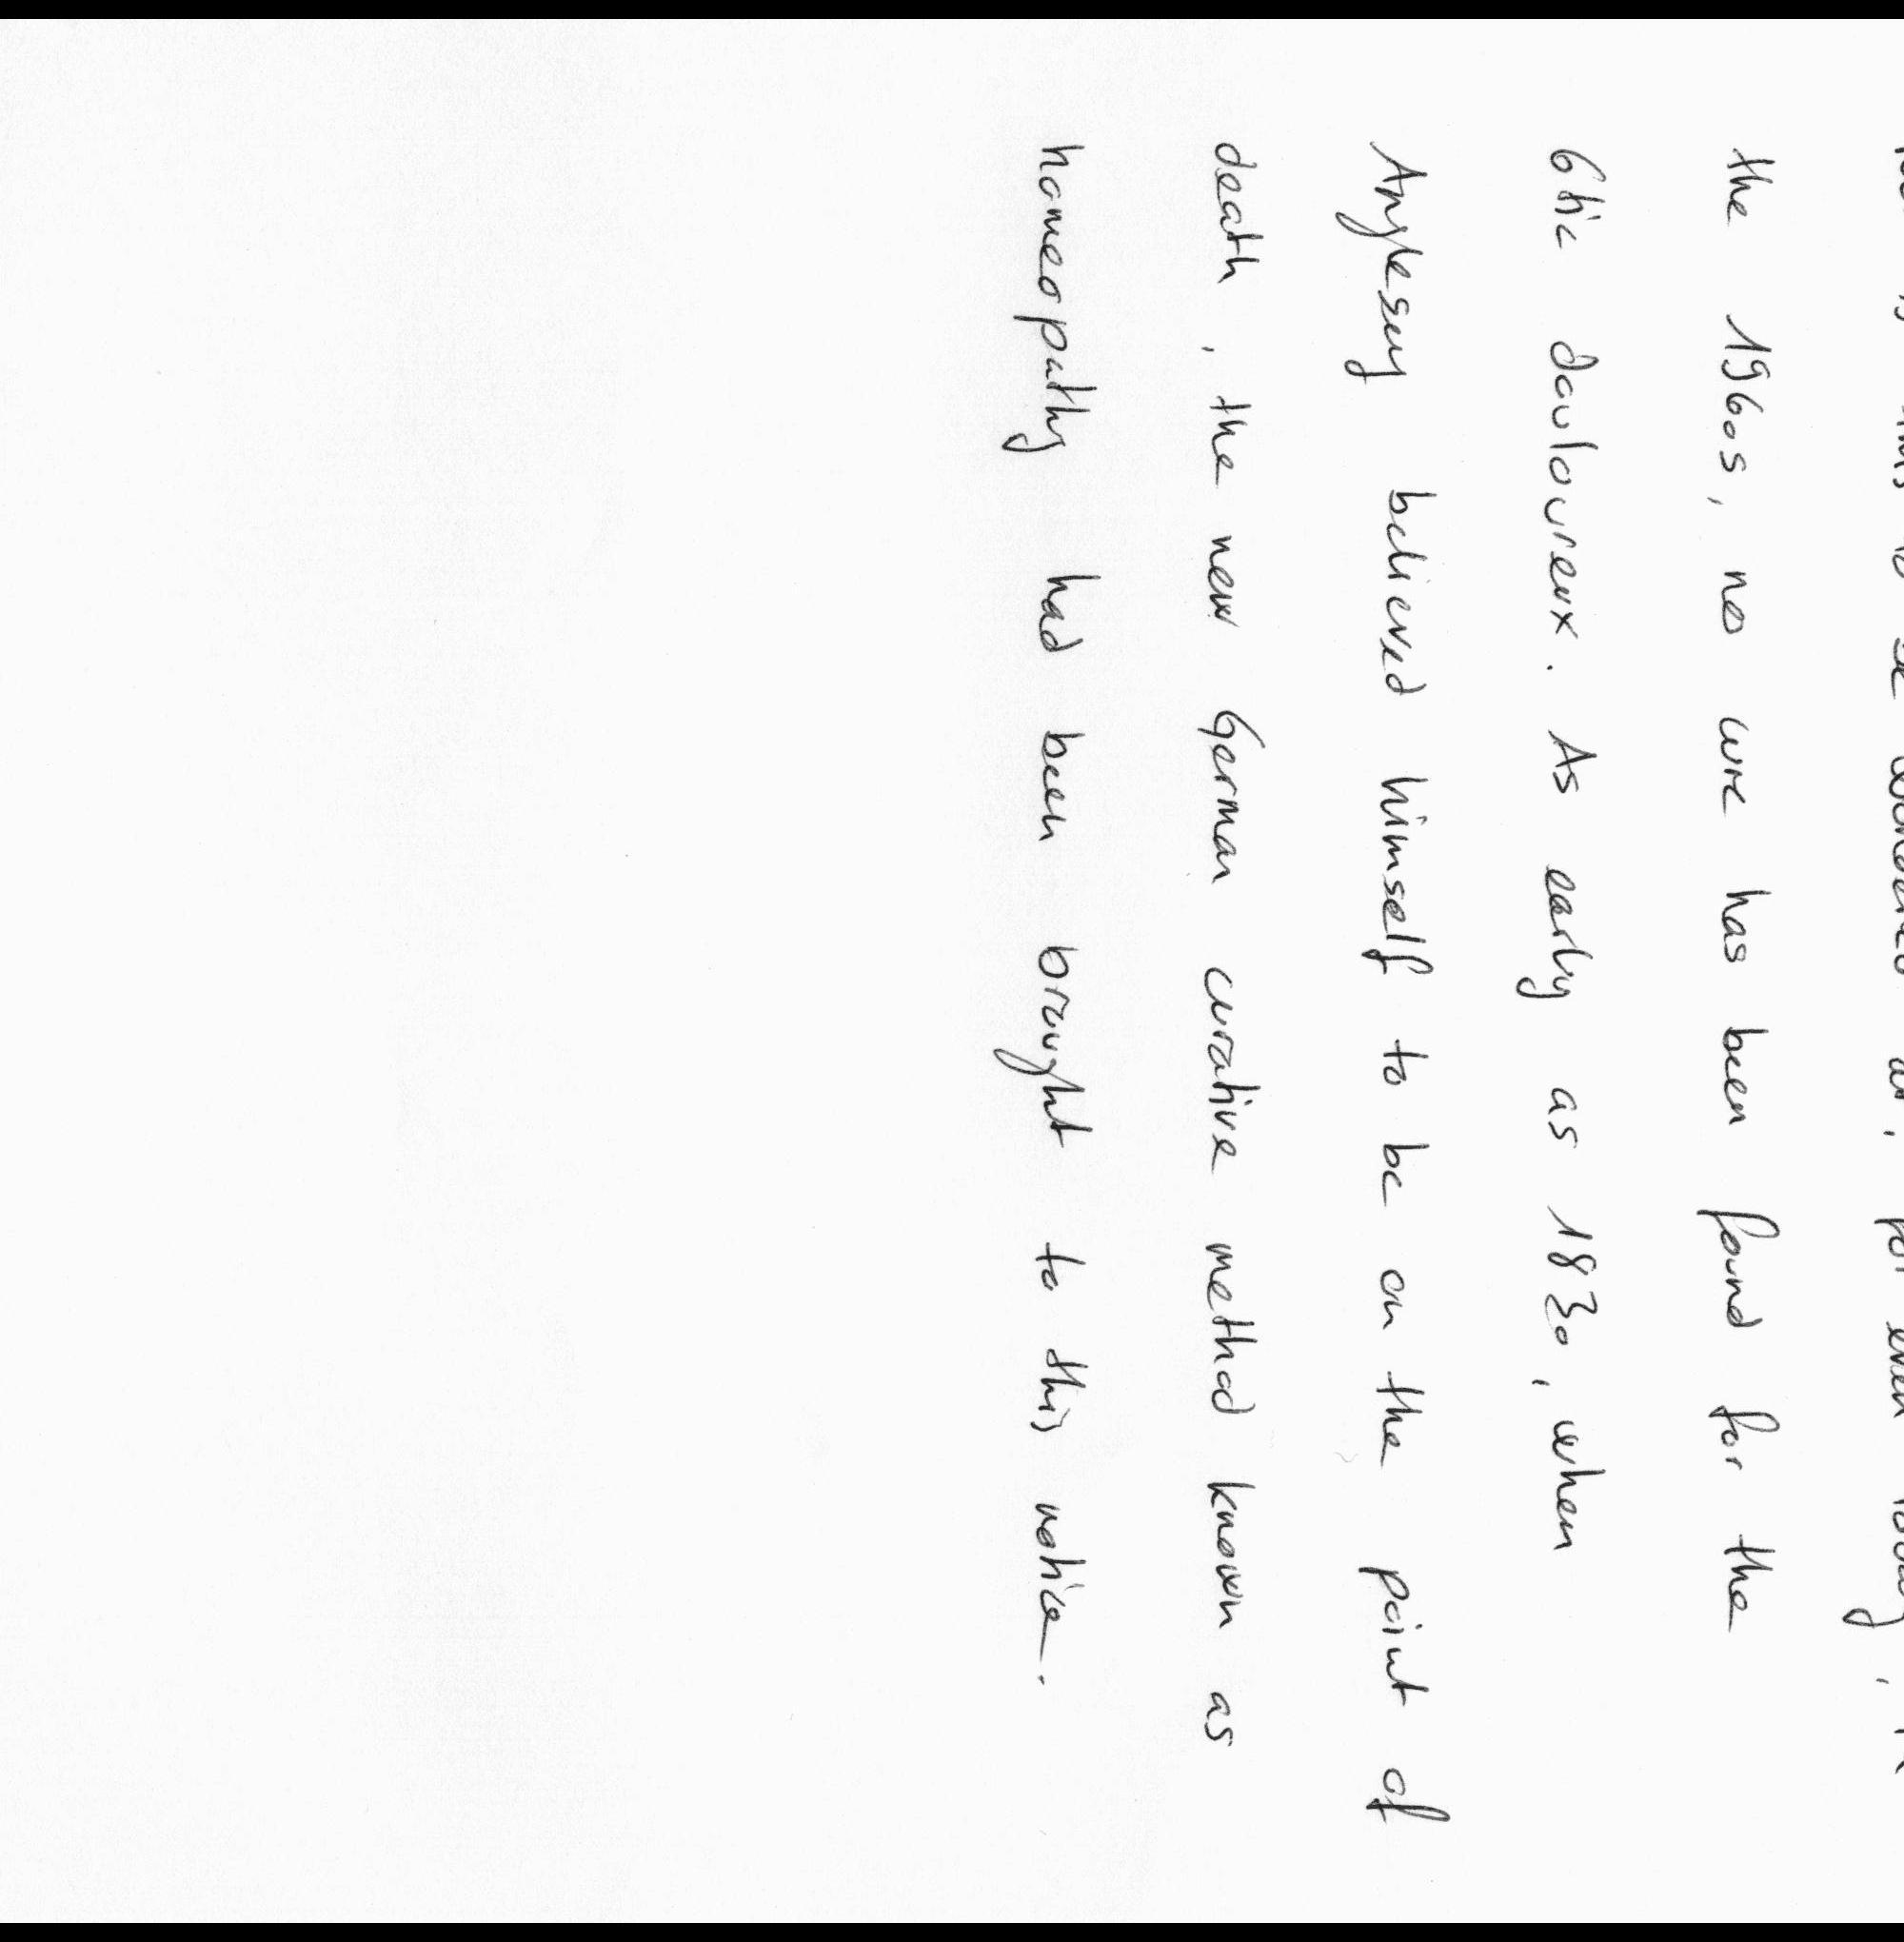 is this to be wondered at, for even today,
the 1960s, no cure has been found for the
6tic douloureux. As early as 1830, when
Anglesey believed himself to be on the point of
death, the new German curative method known as
homeopathy had been brought to this notice.